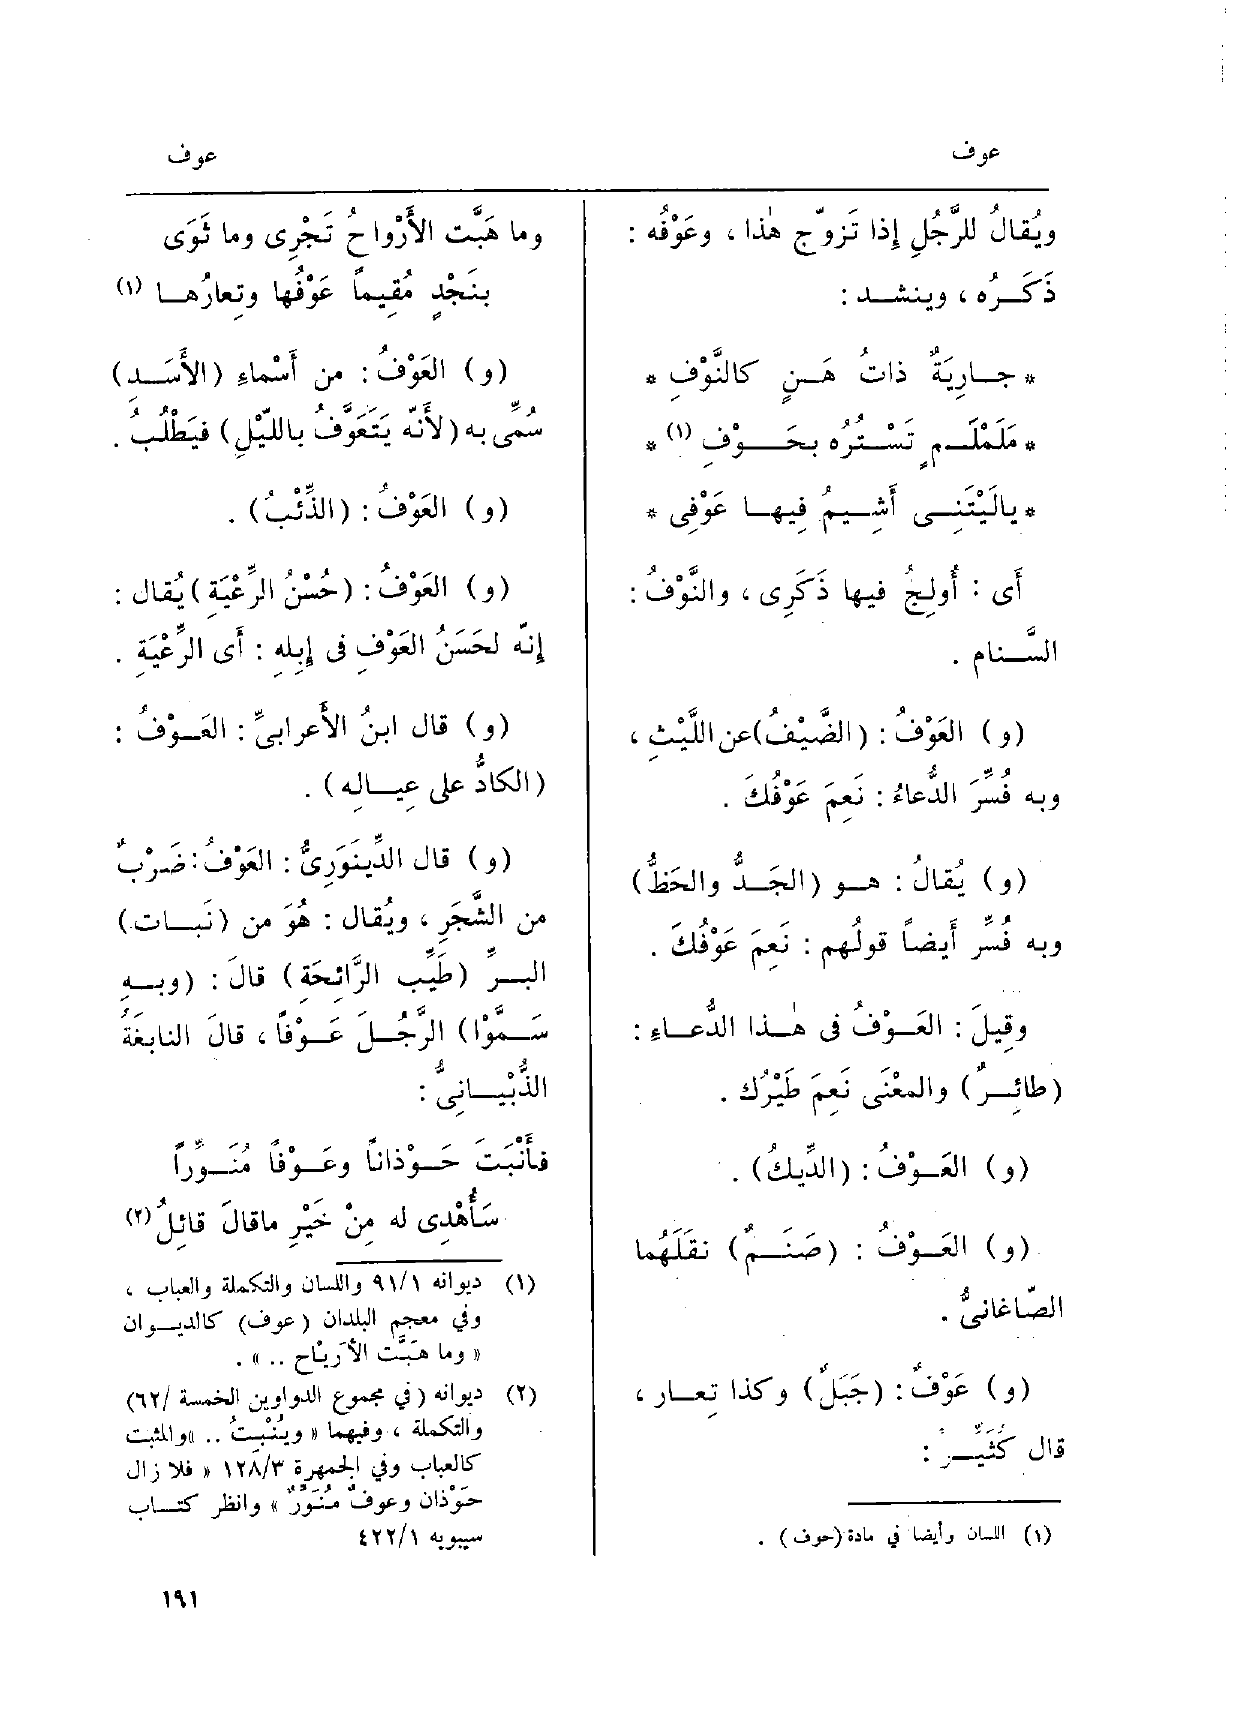 عوف
عوف
ويُقالُ للرَّجُلِ إذا تَزوّج هٰذا ، وعَوْفُه :
ذَكَــرُه ، وينشــد :
* جــارِيَةٌ ذاتُ هَــنٍ كالنَّوْفِ *
* مَلَمْلَــمٍ تَسْــتُرُه بحَــوْفِ (١) *
* يالَيْتَنِــى أَشِــيمُ فِيهــا عَوْفِى *
أَى : أُولِجُ فيها ذَكَرِى ، والنَّوْفُ :
السَّــنام .
(و) العَوْفُ : (الضَّيْفُ) عن اللَّيْثِ ،
وبه فُسِّرَ الدُّعاءُ : نَعِمَ عَوْفُكَ .
(و) يُقالُ : هــو (الجَــدُّ والحَظُّ)
وبه فُسِّر أَيضاً قولُهم : نَعِمَ عَوْفُكَ .
وقِيلَ : العَــوْفُ فى هٰــذا الدُّعــاءِ :
(طائِــرٌ) والمعْنَى نَعِمَ طَيْرُك .
(و) العَــوْفُ : (الدِّيكُ) .
(و) العَــوْفُ : (صَنَــمٌ) نقَلَهُما
الصّاغانىُّ .
(و) عَوْفٌ : (جَبَلٌ) وكذا تِعــار ،
قال كُثَيِّــرٌ :
(١) اللسان وأيضا في مادة (حوف) .
وما هَبَّت الأَرْواحُ تَجْرِى وما ثَوَى
بنَجْدٍ مُقِيماً عَوْفُها وتِعارُهــا (١)
(و) العَوْفُ : من أَسْماءِ (الأَسَــدِ)
سُمِّى به (لأَنّه يَتَعَوَّفُ باللَّيْلِ) فيَطْلُبُ .
(و) العَوْفُ : (الذِّئْبُ) .
(و) العَوْفُ : (حُسْنُ الرِّعْيَةِ) يُقال :
إنّه لحَسَنُ العَوْفِ فى إبِلِه : أَى الرِّعْيَةِ .
(و) قال ابنُ الأَعرابىِّ : العَــوْفُ :
(الكادُّ على عِيــالِه) .
(و) قال الدِّينَوَرِىُّ : العَوْفُ : ضَرْبٌ
من الشَّجَرِ ، ويُقال : هُوَ من (نَبــات)
البــرِّ (طَيِّب الرَّائِحَة) قالَ : (وبــهِ
سَــمَّوْا) الرَّجُــلَ عَــوْفاً ، قالَ النابغَةُ
الذُّبْيــانِىُّ :
فأَنْبَتَ حَــوْذاناً وعَــوْفاً مُنَــوِّراً
سَأُهْدِى له مِنْ خَيْرِ ماقالَ قائِلُ (٢)
(١) ديوانه ٩١/١ واللسان والتكملة والعباب ،
وفي معجم البلدان (عوف) كالديــوان
« وما هبَّت الأَرياح .. » .
(٢) ديوانه (في مجموع الدواوين الخمسة /٦٢)
والتكملة ، وفيهما « ويُنْبِتُ .. » والمثبت
كالعباب وفي الجمهرة ١٢٨/٣ « فلا زال
حَوْذان وعوفٌ مُنَوِّرٌ » وانظر كتــاب
سيبويه ٤٢٢/١
١٩١